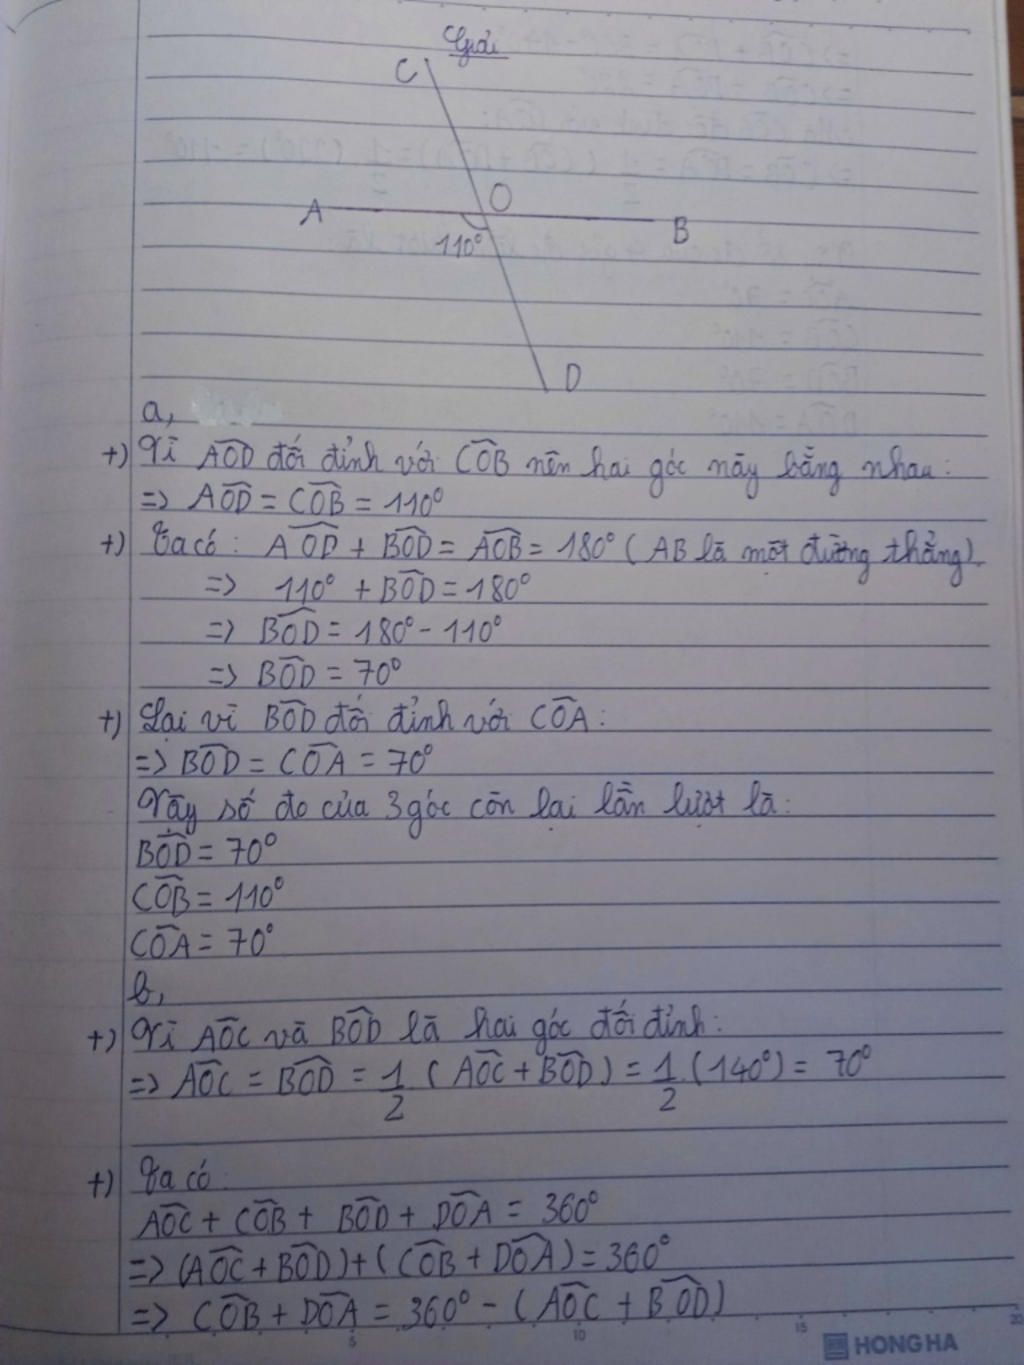 Giải
C
O
A
B
110°
D
a,
+) Vì AÔD đối đỉnh với CÔB nên hai góc này bằng nhau:
=> AÔD = CÔB = 110°
+) Ta có: AÔD + BÔD = AÔB = 180° (AB là một đường thẳng)
=> 110° + BÔD = 180°
=> BÔD = 180° - 110°
=> BÔD = 70°
+) Lại vì BÔD đối đỉnh với CÔA:
=> BÔD = CÔA = 70°
Vậy số đo của 3 góc còn lại lần lượt là:
BÔD = 70°
CÔB = 110°
CÔA = 70°
b,
+) Vì AÔC và BÔD là hai góc đối đỉnh:
=> AÔC = BÔD = 1/2 (AÔC + BÔD) = 1/2 . (140°) = 70°
+) Ta có
AÔC + CÔB + BÔD + DÔA = 360°
=> (AÔC + BÔD) + (CÔB + DÔA) = 360°
=> CÔB + DÔA = 360° - (AÔC + BÔD)
5 10 15 20
HONG HA